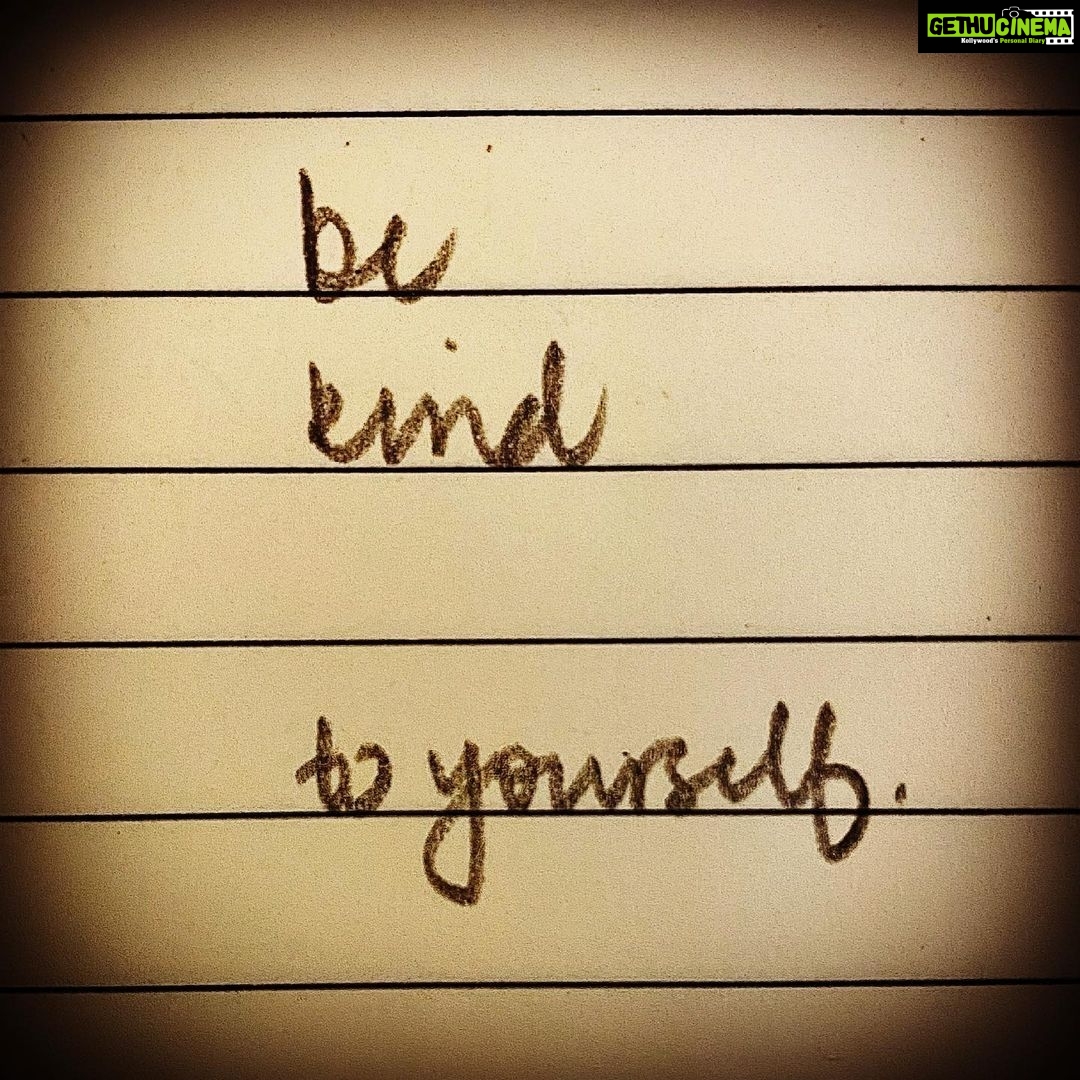 GETHUCINEMA
Kollywood's Personal Diary
be
kind
to yourself.